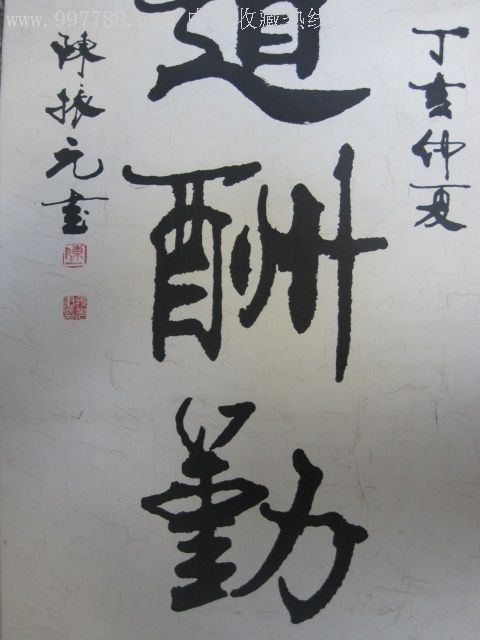 www.997788.com 中国收藏热线
丁亥仲夏
道
酬
勤
陳振元書
陳